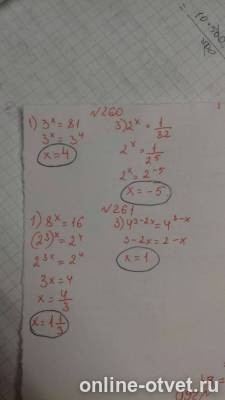 10·300
№260
1) 3ˣ = 81
3ˣ = 3⁴
x = 4
3) 2ˣ = 1/32
2ˣ = 1/2⁵
2ˣ = 2⁻⁵
x = -5
№261
1) 8ˣ = 16
(2³)ˣ = 2⁴
2³ˣ = 2⁴
3x = 4
x = 4/3
x = 1 1/3
3) 4³⁻²ˣ = 4²⁻ˣ
3-2x = 2-x
x = 1
online-otvet.ru